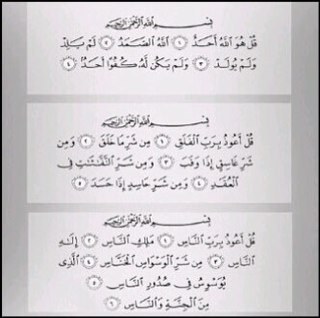 بِسْمِ اللَّهِ الرَّحْمَنِ الرَّحِيمِ
قُلْ هُوَ اللَّهُ أَحَدٌ ١ اللَّهُ الصَّمَدُ ٢ لَمْ يَلِدْ
وَلَمْ يُولَدْ ٣ وَلَمْ يَكُن لَّهُ كُفُوًا أَحَدٌ ٤
بِسْمِ اللَّهِ الرَّحْمَنِ الرَّحِيمِ
قُلْ أَعُوذُ بِرَبِّ الْفَلَقِ ١ مِن شَرِّ مَا خَلَقَ ٢ وَمِن
شَرِّ غَاسِقٍ إِذَا وَقَبَ ٣ وَمِن شَرِّ النَّفَّاثَاتِ فِي
الْعُقَدِ ٤ وَمِن شَرِّ حَاسِدٍ إِذَا حَسَدَ ٥
بِسْمِ اللَّهِ الرَّحْمَنِ الرَّحِيمِ
قُلْ أَعُوذُ بِرَبِّ النَّاسِ ١ مَلِكِ النَّاسِ ٢ إِلَهِ
النَّاسِ ٣ مِن شَرِّ الْوَسْوَاسِ الْخَنَّاسِ ٤ الَّذِي
يُوَسْوِسُ فِي صُدُورِ النَّاسِ ٥
مِنَ الْجِنَّةِ وَالنَّاسِ ٦